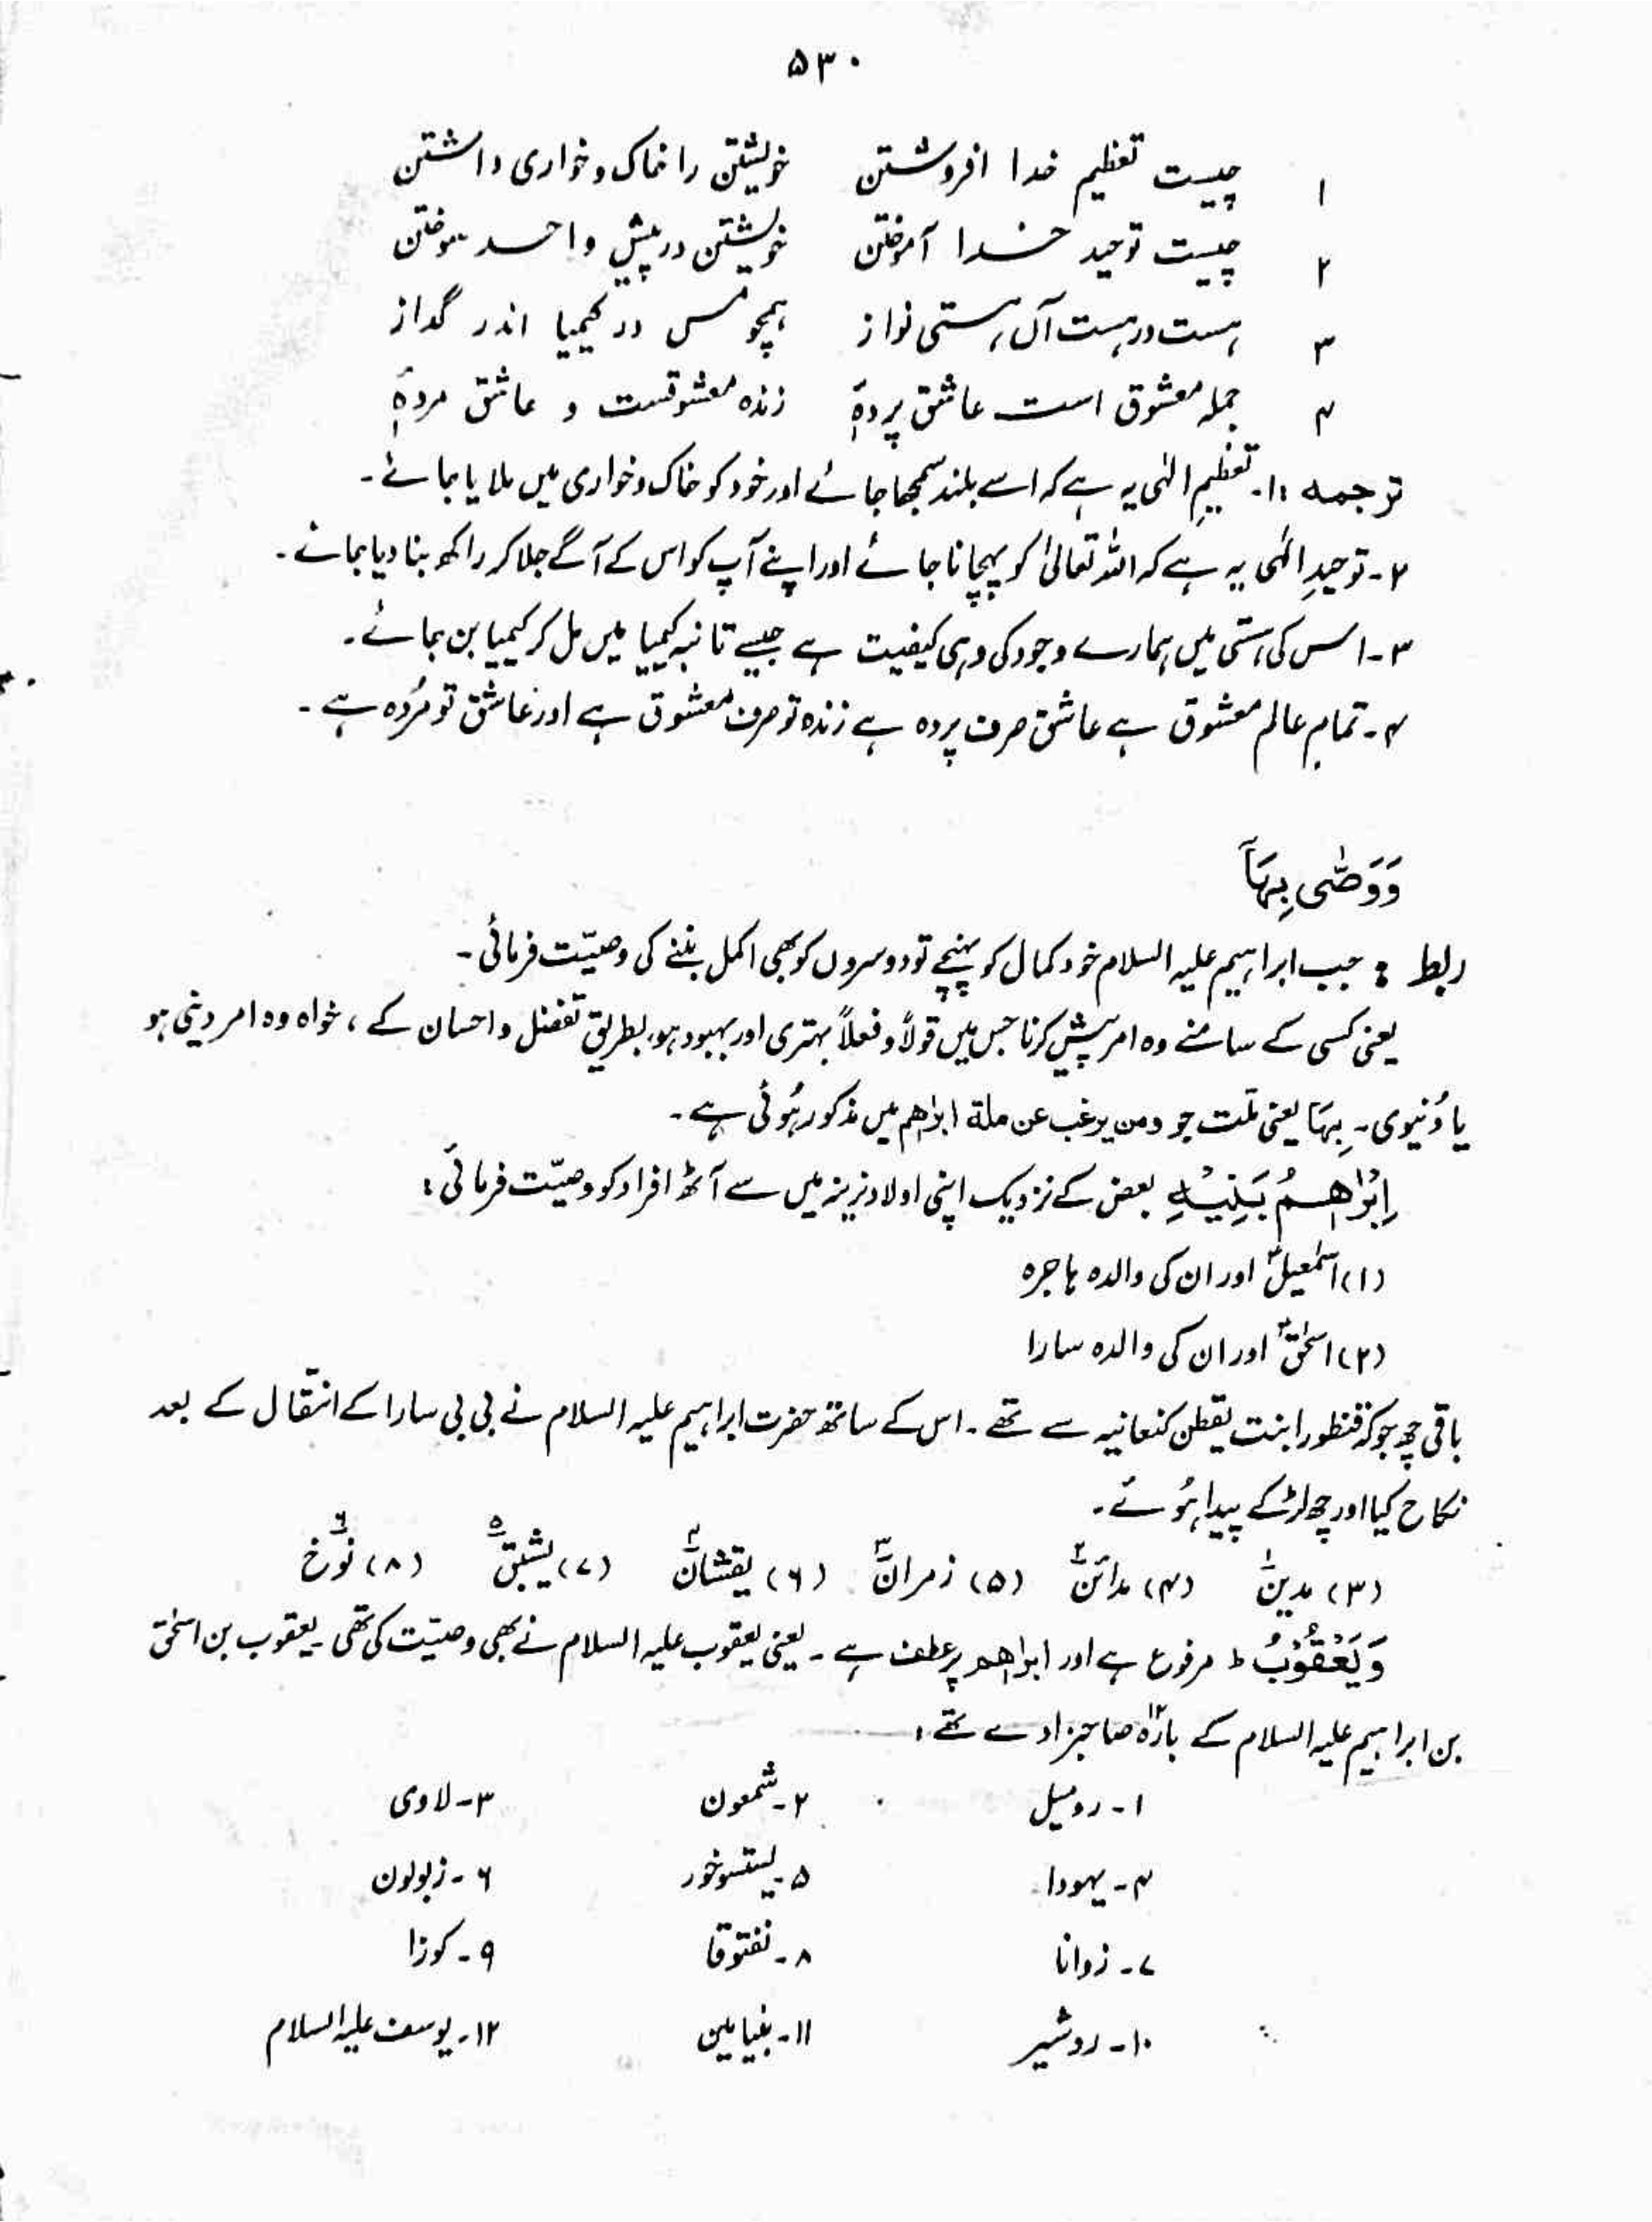 ۵۳۰
۱ چیست تعظیم خدا افروشتن خویشتن را خاک و خواری داشتن
۲ چیست توحید خدا آموختن خویشتن در پیش واحد سوختن
۳ ہست در ہست آں ہستی نواز ہمچو مس در کیمیا اندر گداز
۴ جملہ معشوق است عاشق پردۂ زندہ معشوقست و عاشق مردۂ
ترجمہ :۱۔ تعظیمِ الٰہی یہ ہے کہ اسے بلند سمجھا جائے اور خود کو خاک و خواری میں ملایا جائے۔
۲۔ توحیدِ الٰہی یہ ہے کہ اللہ تعالیٰ کو پہچانا جائے اور اپنے آپ کو اس کے آگے جلا کر راکھ بنا دیا جائے۔
۳۔ اس کی ہستی میں ہمارے وجود کی وہی کیفیت ہے جیسے تانبہ کیمیا میں مل کر کیمیا بن جائے۔
۴۔ تمام عالم معشوق ہے عاشق صرف پردہ ہے زندہ تو صرف معشوق ہے اور عاشق تو مُردہ ہے۔
وَوَصّٰى بِهَآ
ربط : جب ابراہیم علیہ السلام خود کمال کو پہنچے تو دوسروں کو بھی اکمل بننے کی وصیّت فرمائی۔
یعنی کسی کے سامنے وہ امر پیش کرنا جس میں قولاً و فعلاً بہتری اور بہبود ہو، بطریق تفضل و احسان کے ، خواہ وہ امر دینی ہو
یا دُنیوی۔ بِهَآ یعنی ملّت جو ومن یرغب عن ملة ابراهم میں مذکور ہُوئی ہے۔
اِبْرٰاهٖمُ بَنِيْهِ بعض کے نزدیک اپنی اولاد نرینہ میں سے آٹھ افراد کو وصیّت فرمائی :
(۱) اسمٰعیلؑ اور ان کی والدہ ہاجرہ
(۲) اسحٰقؑ اور ان کی والدہ سارا
باقی چھ جو کہ قنطورا بنت یقطن کنعانیہ سے تھے۔ اس کے ساتھ حضرت ابراہیم علیہ السلام نے بی بی سارا کے انتقال کے بعد
نکاح کیا اور چھ لڑکے پیدا ہُوئے۔
(۳) مدین۱ (۴) مدائن۲ (۵) زمران۳ (۶) یقشان۴ (۷) یشبق۵ (۸) نوخ۶
وَيَعْقُوْبُ ط مرفوع ہے اور ابراهم پر عطف ہے۔ یعنی یعقوب علیہ السلام نے بھی وصیّت کی تھی۔ یعقوب بن اسحٰق
بن ابراہیم علیہ السلام کے بارہ۱۲ صاحبزادے تھے :
۱۔ رومیل ۲۔ شمعون ۳۔ لاوی
۴۔ یہودا ۵۔ یستسوخور ۶۔ زبولون
۷۔ زوانا ۸۔ نفتوقا ۹۔ کوزا
۱۰۔ روشیر ۱۱۔ بنیامین ۱۲۔ یوسف علیہ السلام